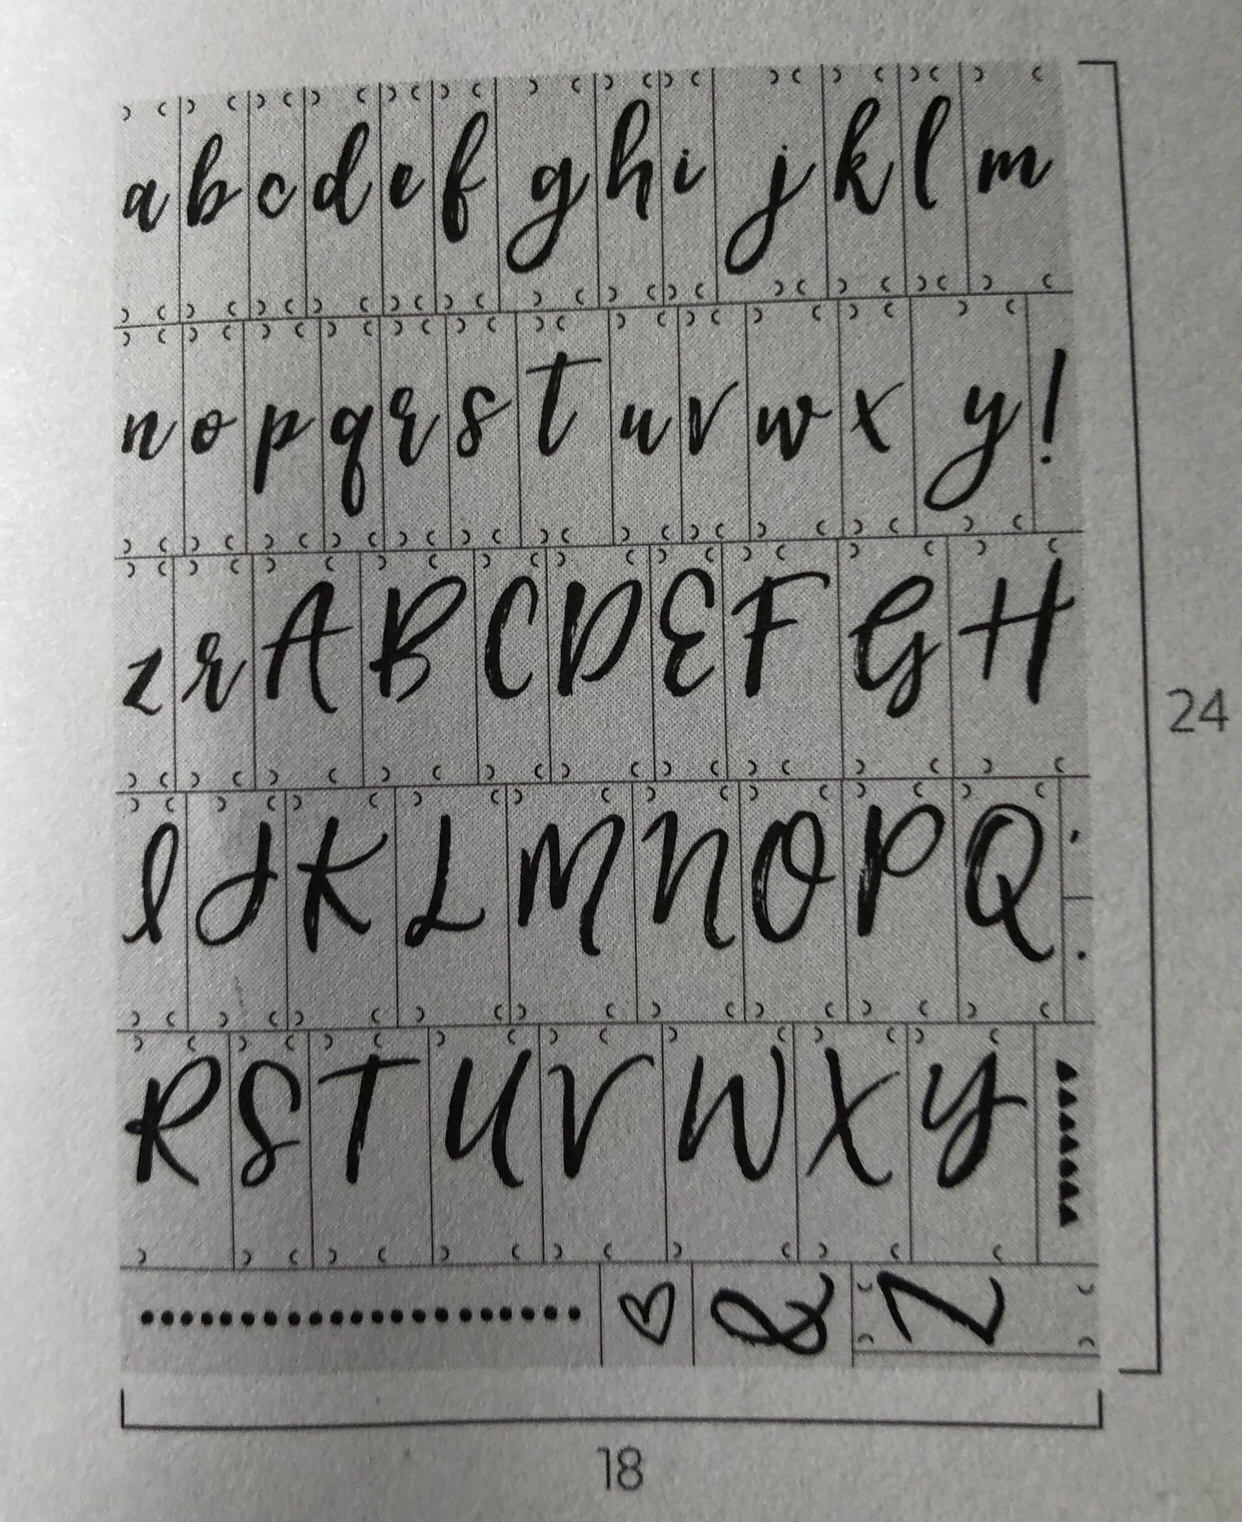 a b c d e f g h i j k l m
n o p q r s t u v w x y !
z r A B C D E F G H
24
I J K L M N O P Q , .
R S T U V W X Y
& Z
18